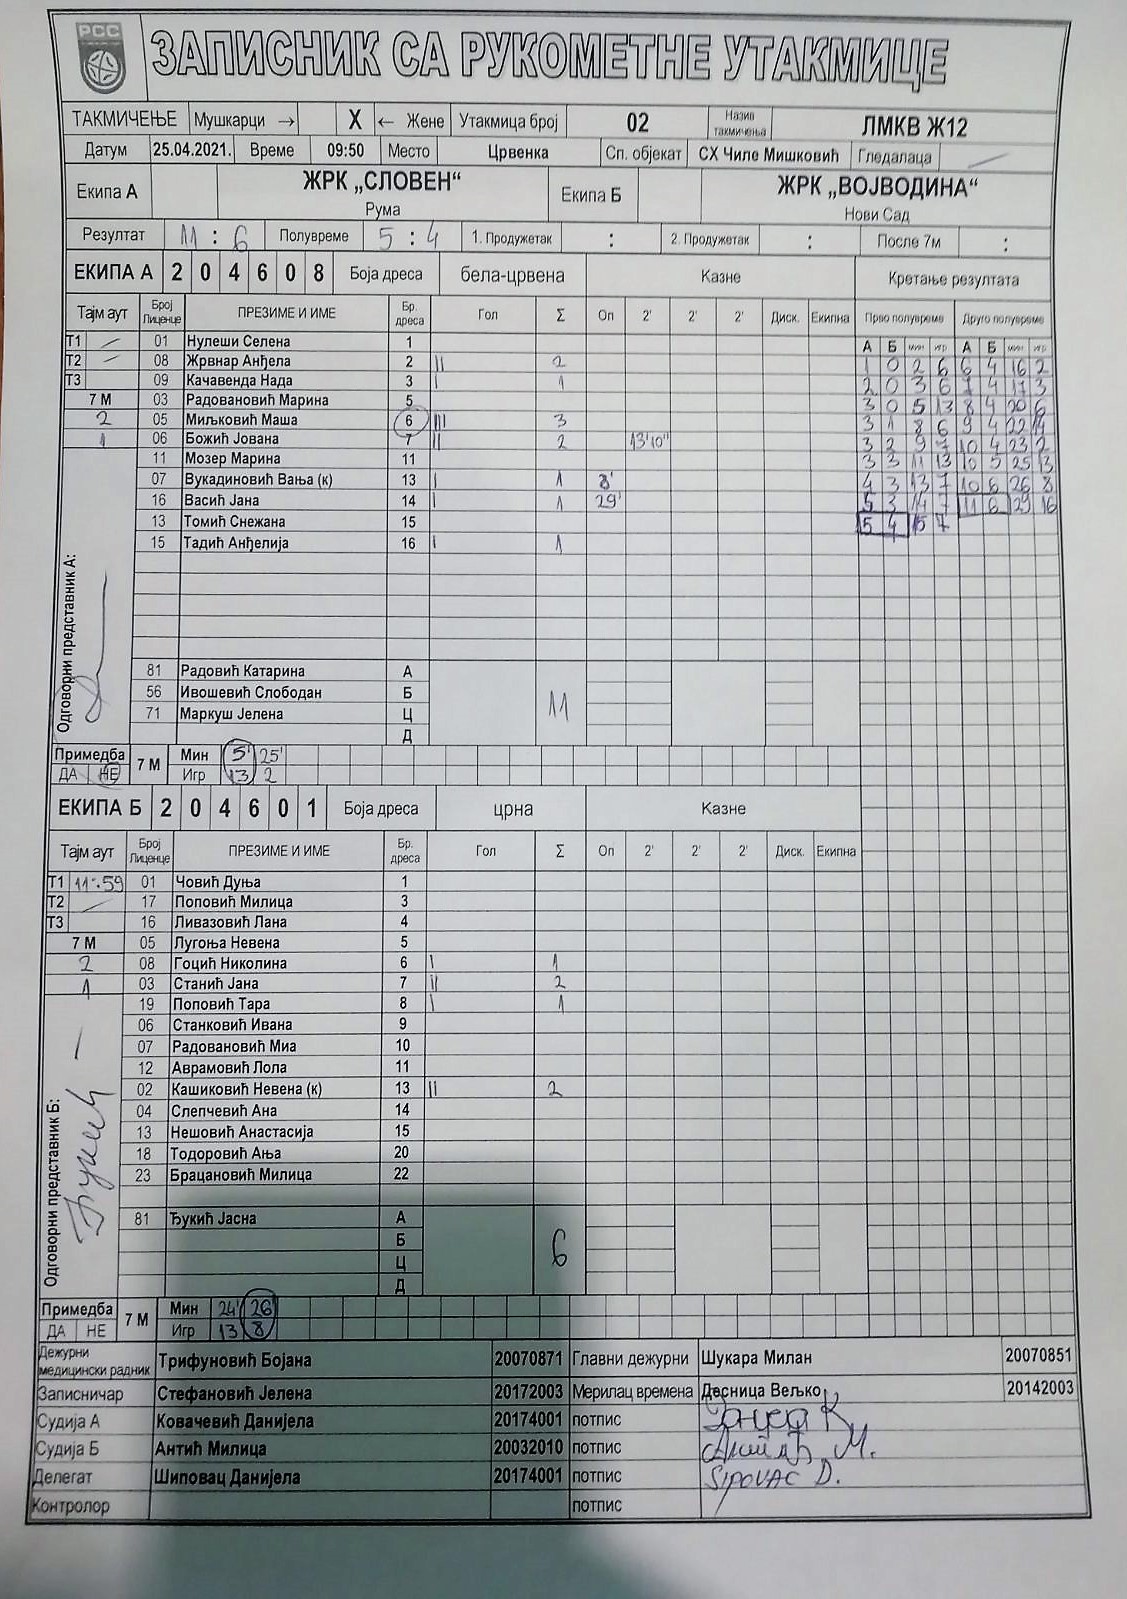 РСС
ЗАПИСНИК СА РУКОМЕТНЕ УТАКМИЦЕ
ТАКМИЧЕЊЕ Мушкарци → X ← Жене Утакмица број 02 Назив такмичења ЛМКВ Ж12
Датум 25.04.2021. Време 09:50 Место Црвенка Сп. објекат СХ Чиле Мишковић Гледалаца
Екипа А ЖРК „СЛОВЕН“ Рума Екипа Б ЖРК „ВОЈВОДИНА“ Нови Сад
Резултат 11 : 6 Полувреме 5 : 4 1. Продужетак : 2. Продужетак : После 7м :
ЕКИПА А 2 0 4 6 0 8 Боја дреса бела-црвена Казне Кретање резултата
Тајм аут Број Лиценце ПРЕЗИМЕ И ИМЕ Бр. дреса Гол Σ Оп 2' 2' 2' Диск. Екипна Прво полувреме Друго полувреме
Т1 01 Нулеши Селена 1 А Б мин игр А Б мин игр
Т2 08 Жрвнар Анђела 2 || 2 1 0 2 6 6 4 16 2
Т3 09 Качавенда Нада 3 | 1 2 0 3 6 7 4 17 3
7 М 03 Радовановић Марина 5 3 0 5 13 8 4 20 6
2 05 Миљковић Маша 6 ||| 3 3 1 8 6 9 4 22 14
1 06 Божић Јована 7 || 2 13'10" 3 2 9 7 10 4 23 2
11 Мозер Марина 11 3 3 11 13 10 5 25 13
07 Вукадиновић Вања (к) 13 | 1 8' 4 3 13 7 10 6 26 8
16 Васић Јана 14 | 1 29' 5 3 14 7 11 6 29 16
13 Томић Снежана 15 5 4 15 7
15 Тадић Анђелија 16 | 1
Одговорни представник А:
81 Радовић Катарина А
56 Ивошевић Слободан Б 11
71 Маркуш Јелена Ц
Д
Примедба 7 М Мин 5' 25'
ДА НЕ Игр 13 2
ЕКИПА Б 2 0 4 6 0 1 Боја дреса црна Казне
Тајм аут Број Лиценце ПРЕЗИМЕ И ИМЕ Бр. дреса Гол Σ Оп 2' 2' 2' Диск. Екипна
Т1 11:59 01 Човић Дуња 1
Т2 17 Поповић Милица 3
Т3 16 Ливазовић Лана 4
7 М 05 Лугоња Невена 5
2 08 Гоцић Николина 6 | 1
1 03 Станић Јана 7 || 2
19 Поповић Тара 8 | 1
06 Станковић Ивана 9
07 Радовановић Миа 10
12 Аврамовић Лола 11
02 Кашиковић Невена (к) 13 || 2
04 Слепчевић Ана 14
13 Нешовић Анастасија 15
18 Тодоровић Ања 20
23 Брацановић Милица 22
Одговорни представник Б: Ђукић
81 Ђукић Јасна А
Б 6
Ц
Д
Примедба 7 М Мин 24' 26'
ДА НЕ Игр 13 8
Дежурни медицински радник Трифуновић Бојана 20070871 Главни дежурни Шукара Милан 20070851
Записничар Стефановић Јелена 20172003 Мерилац времена Десница Вељко 20142003
Судија А Ковачевић Данијела 20174001 потпис
Судија Б Антић Милица 20032010 потпис Антић М.
Делегат Шиповац Данијела 20174001 потпис Šipovac D.
Контролор потпис